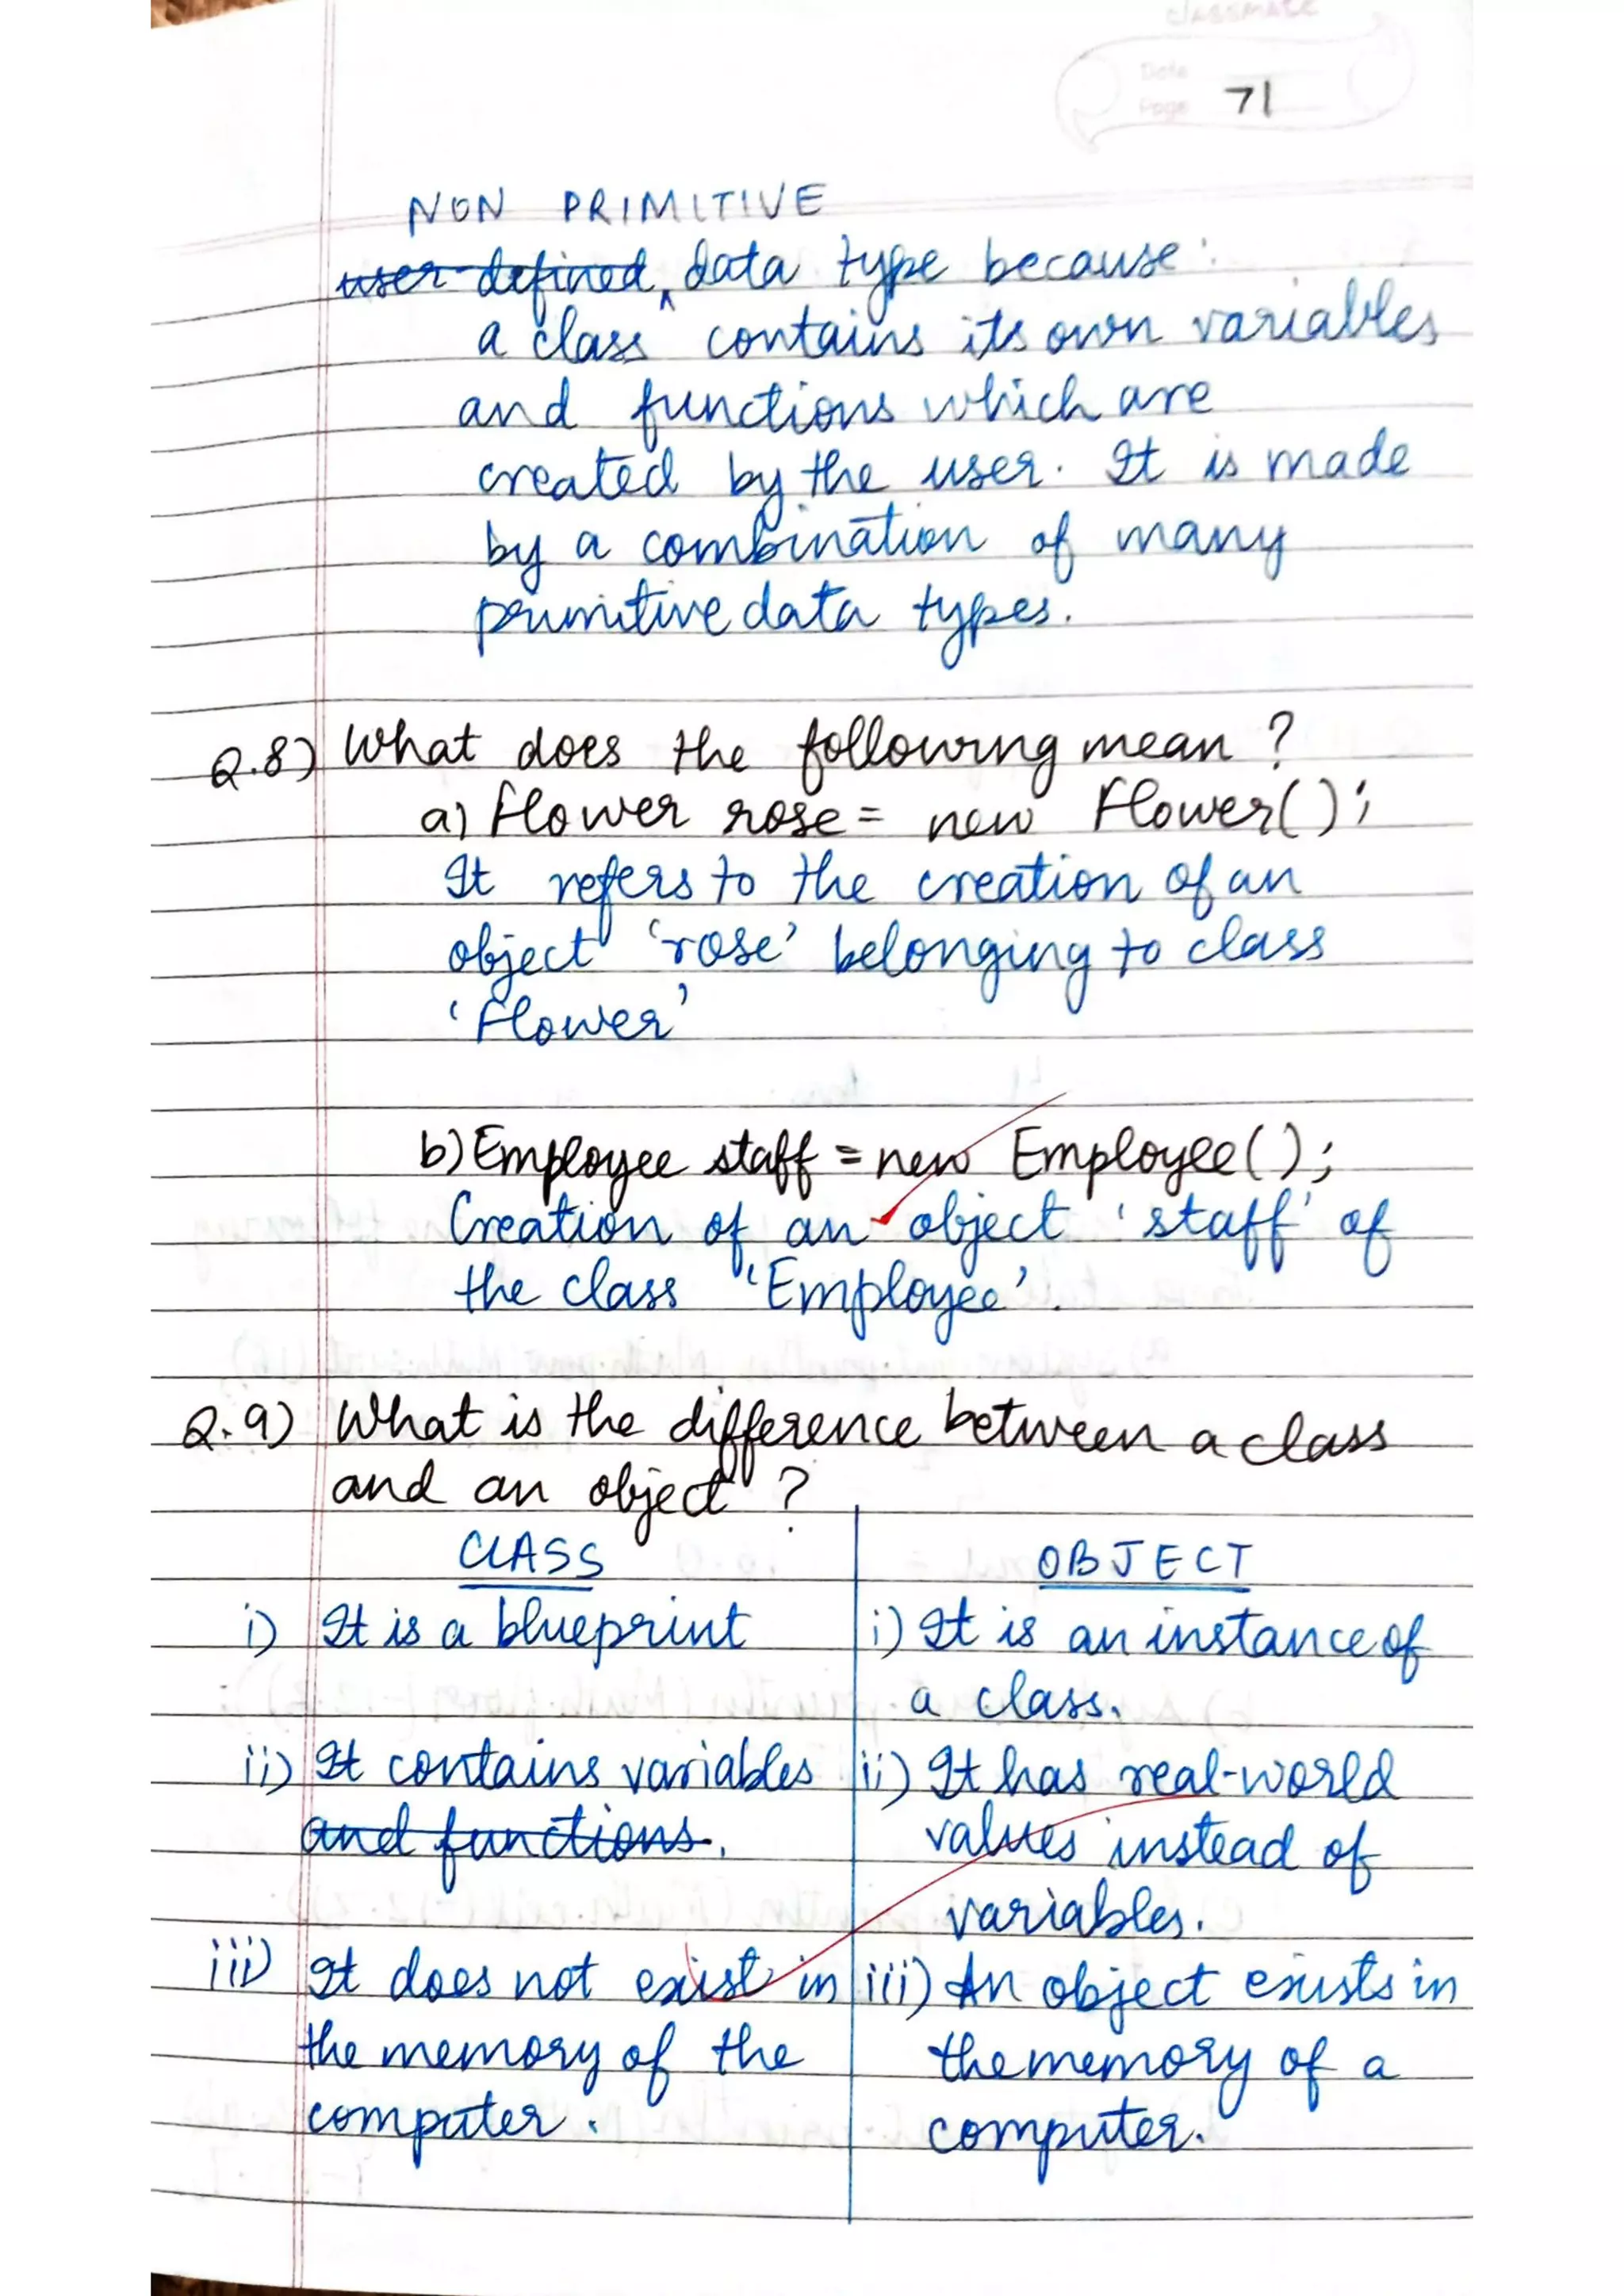 classmate
Date
Page 71
NON PRIMITIVE
user-defined ^ data type because :
a class contains its own variables
and functions which are
created by the user. It is made
by a combination of many
primitive data types.
Q.8) What does the following mean ?
a) Flower rose = new Flower();
It refers to the creation of an
object 'rose' belonging to class
'Flower'
b) Employee staff = new Employee();
Creation of an object 'staff' of
the class 'Employee'.
Q.9) What is the difference between a class
and an object ?
CLASS
i) It is a blueprint
ii) It contains variables
and functions.
iii) It does not exist in
the memory of the
computer.
OBJECT
i) It is an instance of
a class.
ii) It has real-world
values instead of
variables.
iii) An object exists in
the memory of a
computer.